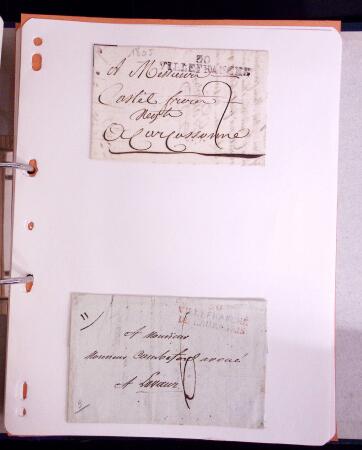 1805
30
VILLEFRANCHE
A Messieurs
Castel freres
Negts
A Carcassonne
11
30
VILLEFRANCHE
DE LAURAGAIS
A Monsieur
Monsieur Combeford avoué
A Lavaur